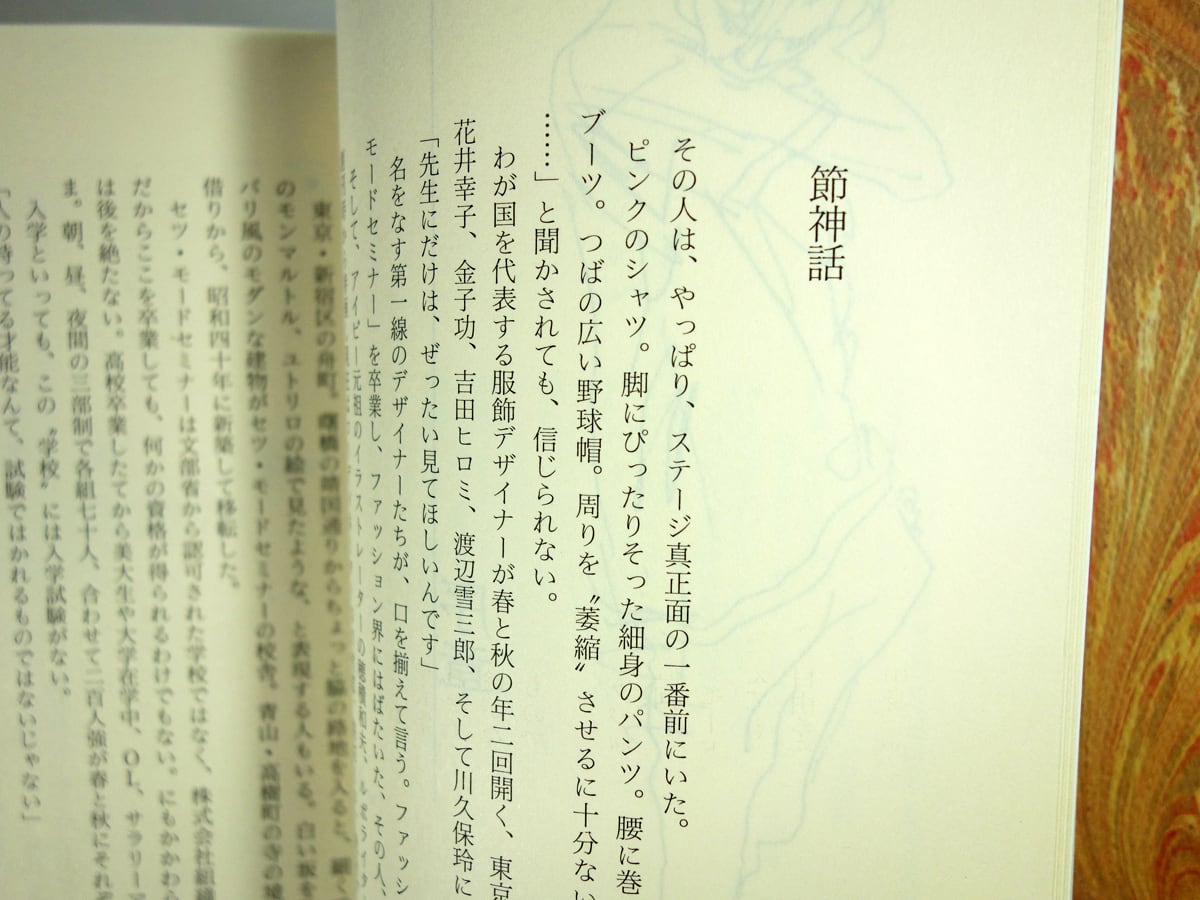 節神話
その人は、やっぱり、ステージ真正面の一番前にいた。
ピンクのシャツ。脚にぴったりそった細身のパンツ。腰に巻
ブーツ。つばの広い野球帽。周りを〝萎縮〟させるに十分ない
……」と聞かされても、信じられない。
わが国を代表する服飾デザイナーが春と秋の年二回開く、東京
花井幸子、金子功、吉田ヒロミ、渡辺雪三郎、そして川久保玲に
「先生にだけは、ぜったい見てほしいんです」
名をなす第一線のデザイナーたちが、口を揃えて言う。ファッシ
モードセミナー」を卒業し、ファッション界にはばたいた、その人、
そして、アイビー元祖のイラストレーターの穂積和夫、ルポライタ
東京・新宿区の舟町。曙橋の靖国通りからちょっと脇の路地を入ると、細く
のモンマルトル、ユトリロの絵で見たような、と表現する人もいる。白い坂を
パリ風のモダンな建物がセツ・モードセミナーの校舎。青山・高樹町の寺の境
借りから、昭和四十年に新築して移転した。
セツ・モードセミナーは文部省から認可された学校ではなく、株式会社組織
だからここを卒業しても、何かの資格が得られるわけでもない。にもかかわら
は後を絶たない。高校卒業したてから美大生や大学在学中、OL、サラリーマ
ま。朝、昼、夜間の三部制で各組七十人、合わせて二百人強が春と秋にそれぞ
入学といっても、この〝学校〟には入学試験がない。
「人の持ってる才能なんて、試験ではかれるものではないじゃない」